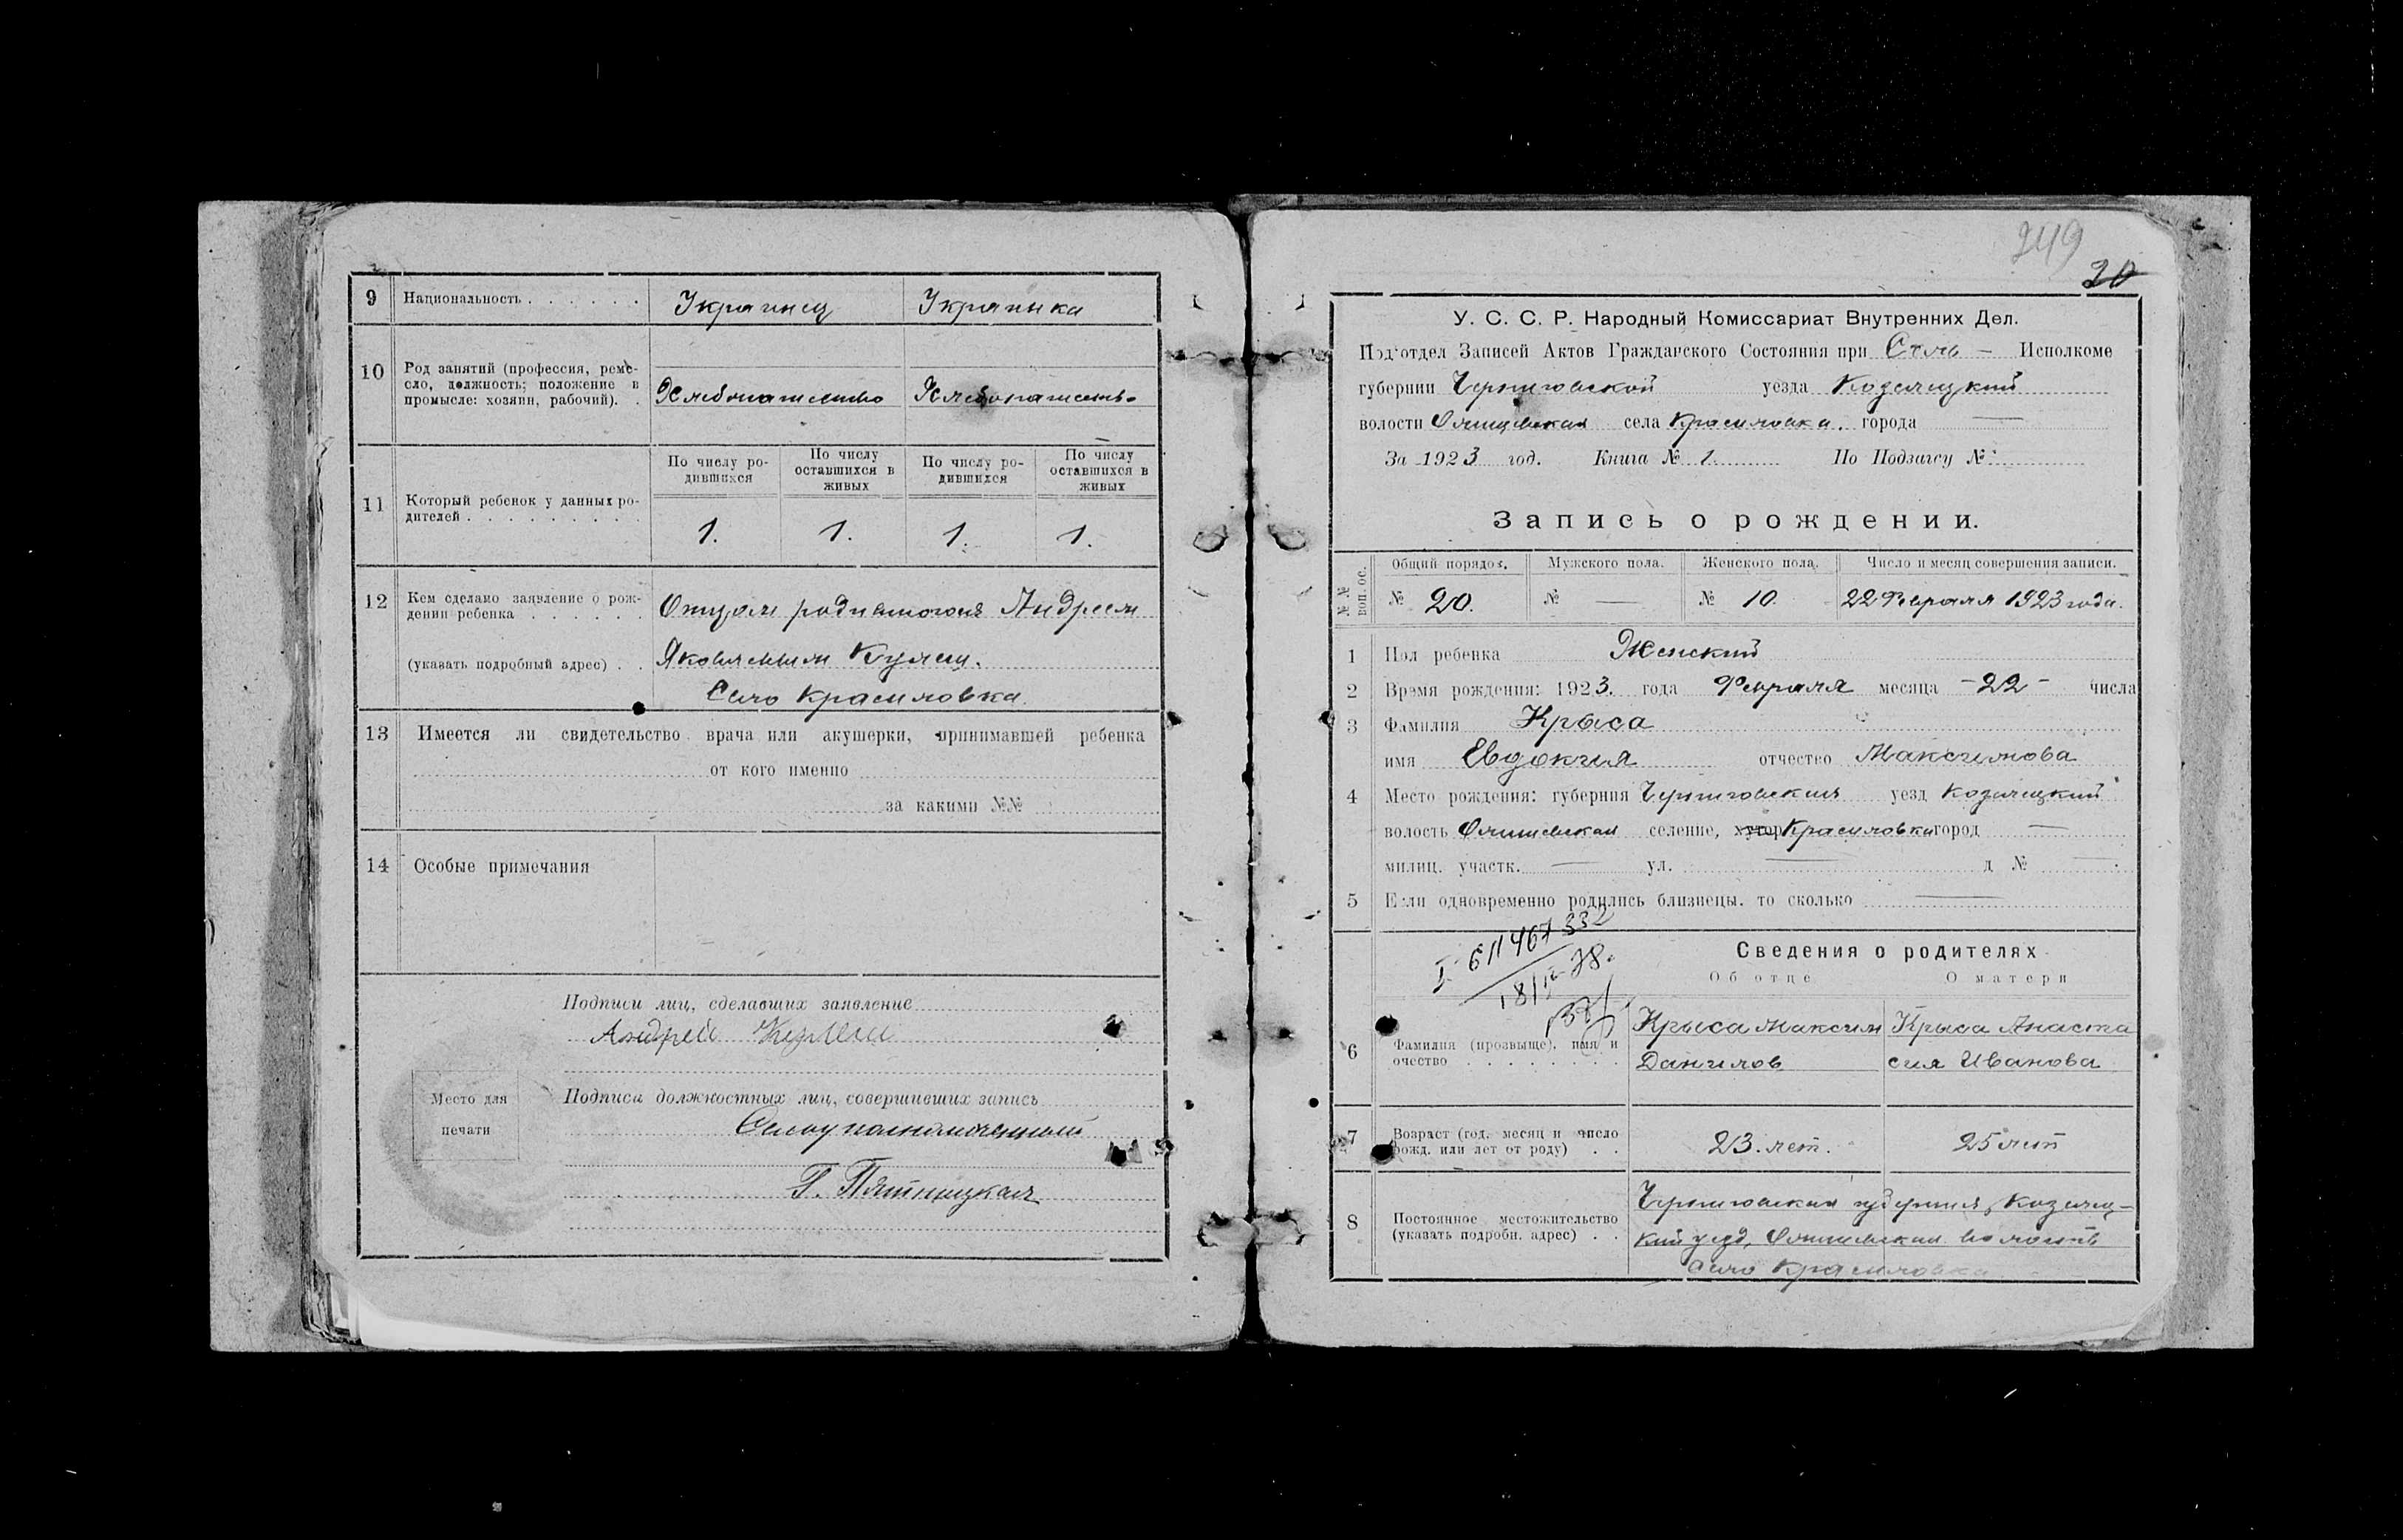 9 Национальность . . . . . . Украинец Украинка
10 Род занятий (профессия, реме-
сло, должность; положение в
промысле: хозяин, рабочий). . Хлебопашество Хлебопашеств
11 Который ребенок у данных ро-
дителей . . . . . . . . .
По числу ро-
дившихся
По числу
оставшихся в
живых
По числу ро-
дившихся
По числу
оставшихся в
живых
1. 1. 1. 1.
12 Кем сделано заявление о рож-
дении ребенка . . . . . . Отцом родившогося Андреем
(указать подробный адрес) . . Яковлевым Кулеш.
Село Красиловка.
13 Имеется ли свидетельство врача или акушерки, принимавшей ребенка
от кого именно
за какими №№
14 Особые примечания
Подписи лиц, сделавших заявление
Андрей Кулеш
Место для
печати
Подписи должностных лиц, совершивших запись
Г. Пятницкая
249
20
У. С. С. Р. Народный Комиссариат Внутренних Дел.
Под'отдел Записей Актов Гражданского Состояния при Сель — Исполкоме
губернии Черниговской уезда Козелецкий
волости Олишевская села Красиловка. города —
За 1923 год. Книга № 1. По Подзагсу №
Запись о рождении.
№№ воп. ос. Общий порядов. Мужского пола. Женского пола. Число и месяц совершения записи.
№ 20. № — № 10. 22 Февраля 1923 года.
1 Пол ребенка Женский
2 Время рождения: 1923. года Февраля месяца - 22 - числа
3 Фамилия Крыса
имя Евдокия отчество Максимова
4 Место рождения: губерния Черниговская уезд Козелецкий
волость Олишевская селение, хутор Красиловка город —
милиц. участк. — ул. — д № —
5 Если одновременно родились близнецы. то сколько —
I- 611467 332
Сведения о родителях
Об отце О матери
6 Фамилия (прозвыще), имя и
очество . . . . . . . .
Крыса Максим
Данилов
Крыса Анаста
сия Иванова
7 Возраст (год, месяц и число
рожд. или лет от роду) . . 23. лет. 25 лет
8 Постоянное местожительство
(указать подробн. адрес) . .
Черниговская губерния, Козелец-
кий уезд, Олишевская волость
Село Красиловка